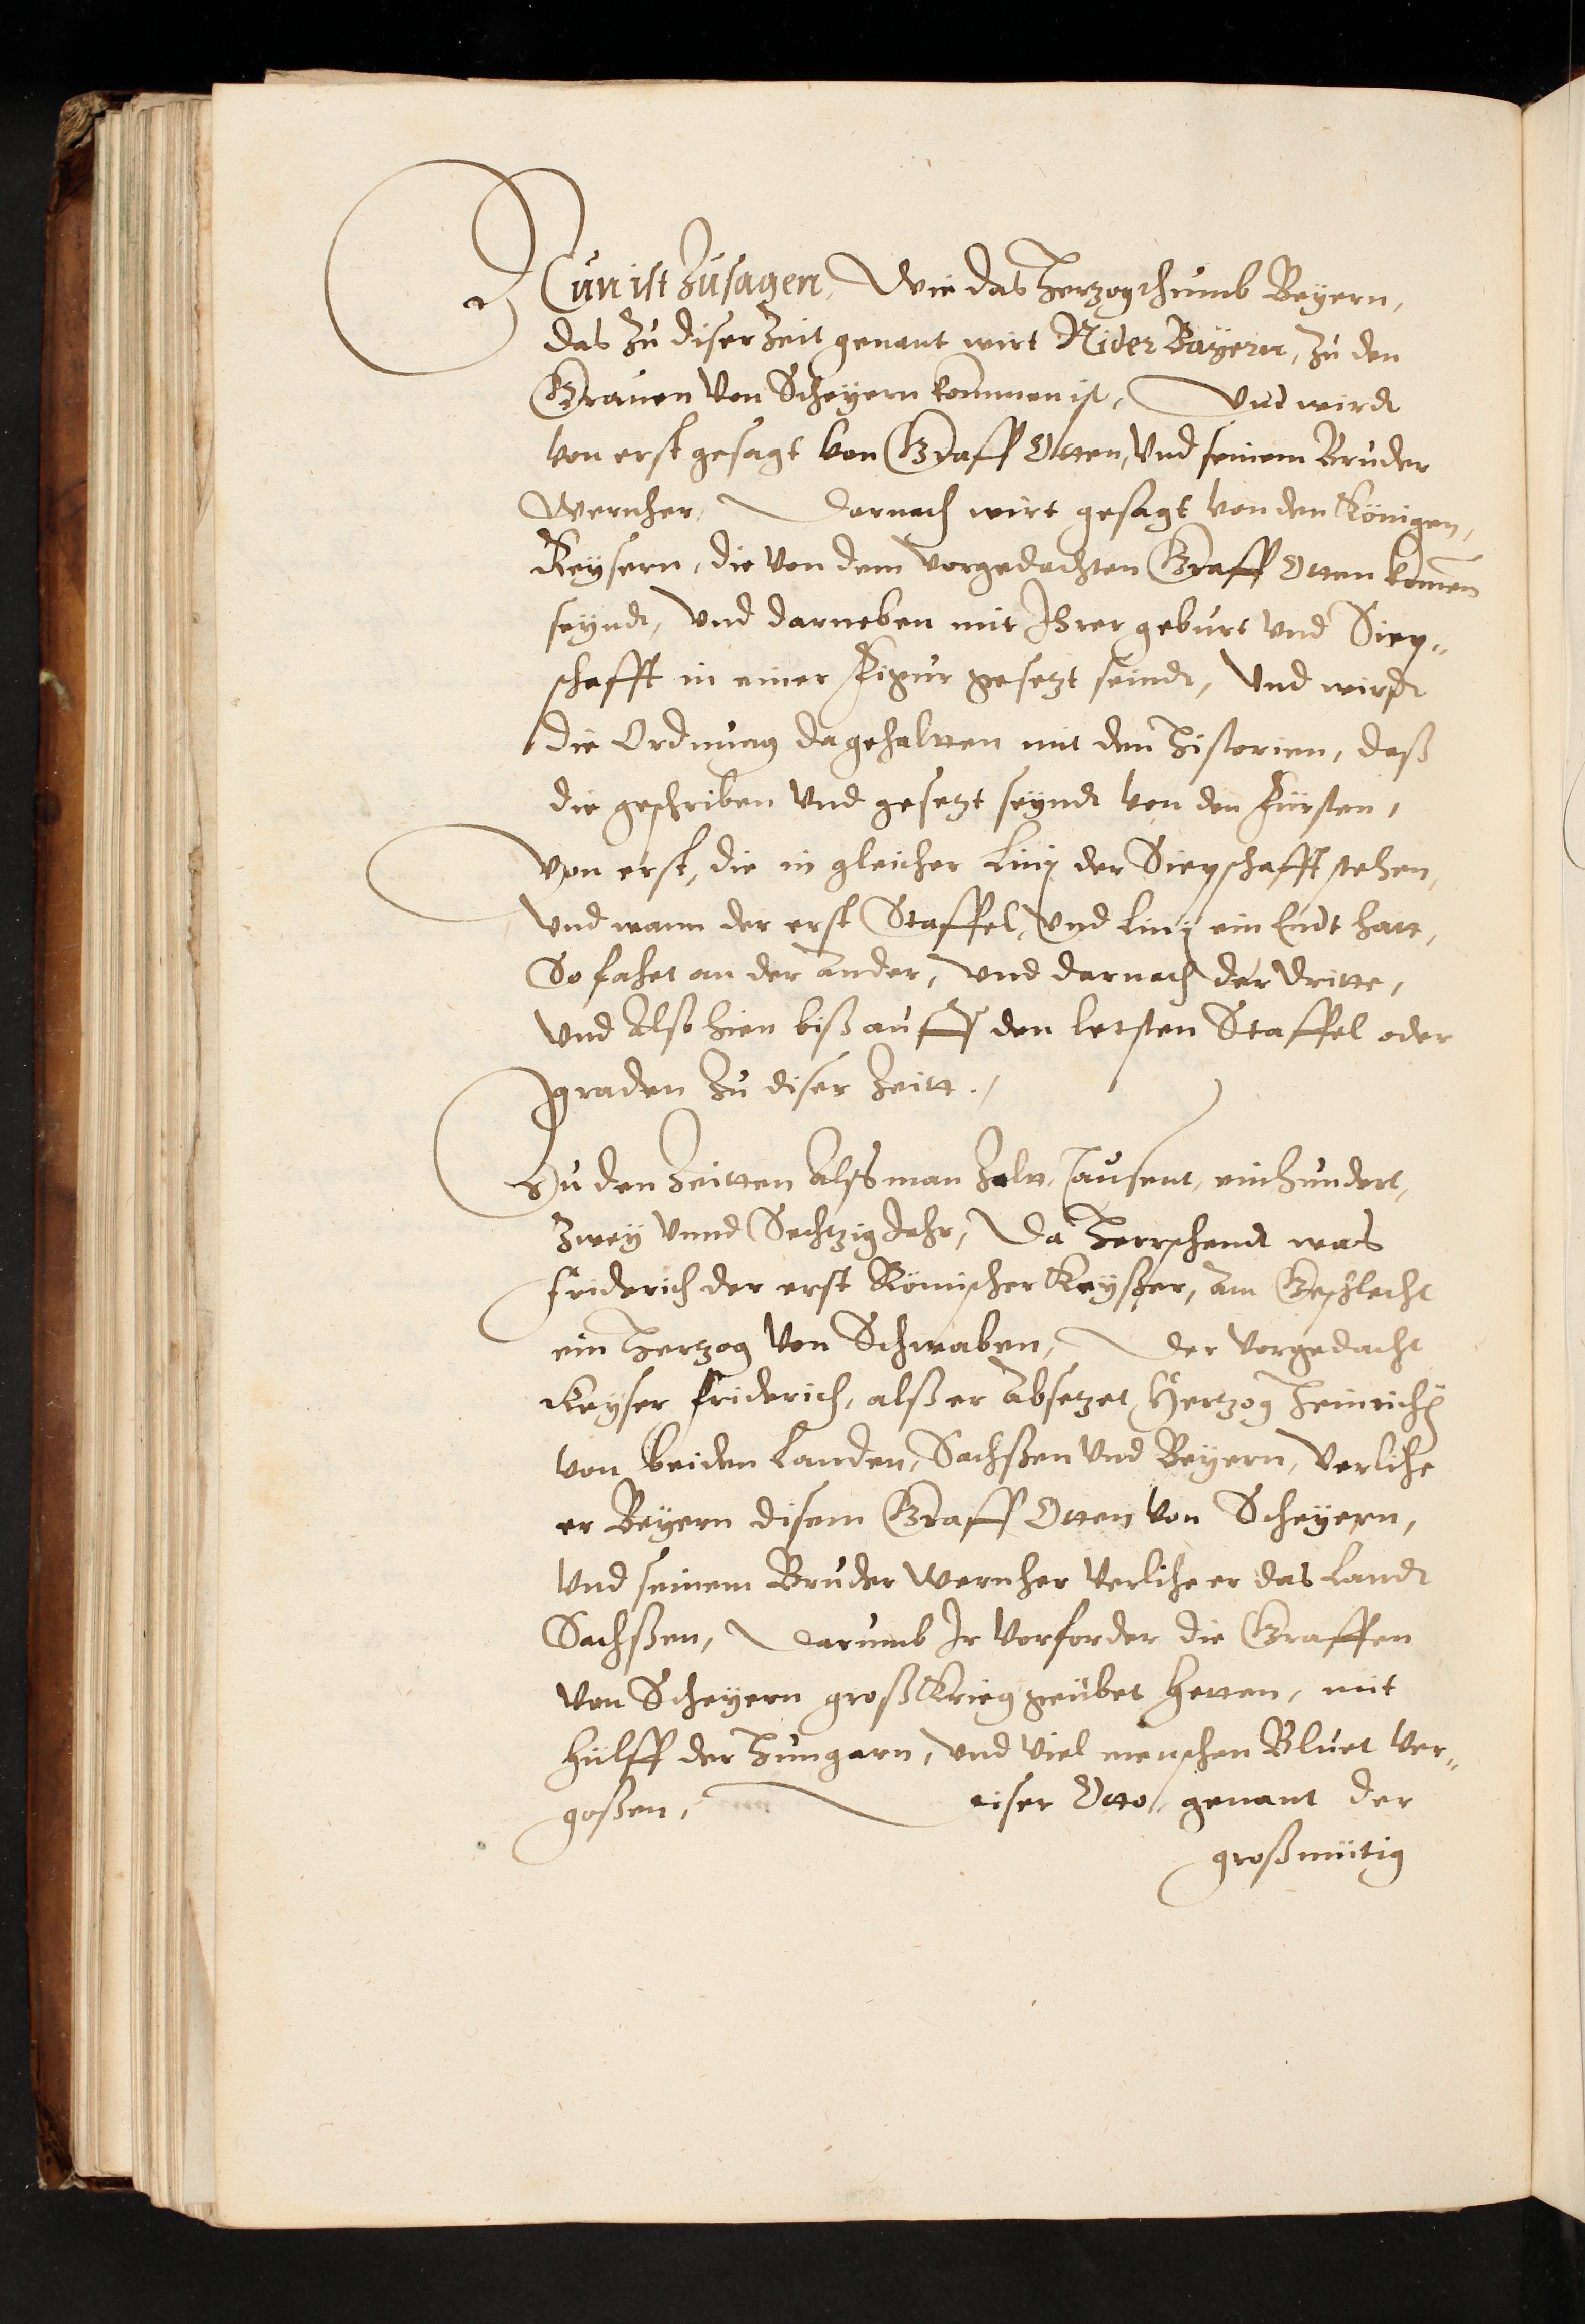 Nun ist Zusagen, Wie das Hertzogthumb Beÿern,
das Zu diser Zeit genant wirt Nider Bayern, Zu den
Grauen Von Scheÿern kommen ist, Vnd wirdt
von erst gesagt von Graff Otten, Vnd seinem Bruder
Wernher, Darnach wirt gesagt von den Königen,
Keÿsern, die Von dem Vorgedachten Graff Otten komen
seÿndt, Vnd darneben mit Ihrer geburt Vnd Siep„
schafft in einer Figur gesetzt seindt, Vnd wirdt
die Ordnung da gehaltten mit den Historien, daß
die geschriben Vnd gesetzt seÿndt von den Fürsten,
Von erst, die in gleicher Linj der Siepschafft stehen,
Vnd wann der erst Staffel, Vnd Linj ein Endt hatt,
So fahet an der Ander, Vnd darnach der Dritte,
Vnd Also hien biß auff den letsten Staffel oder
graden Zu diser Zeitt.
Zu den Zeitten Alß man Zaltt, Tausent, einhundert,
Zweÿ Vnnd Sechtzig Jahr, Da Herrschendt was
Friderich der erst Römischer Keÿßer, Am Geschlecht
ein Hertzog Von Schwaben, Der Vorgedacht
Keÿser Friderich, alß er Absetzet Hertzog Heinrichē
von beiden Landen, Sachßen Vnd Beÿern, Verlihe
er Beÿern disem Graff Otten von Scheÿern,
Vnd seinem Bruder Wernher Verlihe er das Landt
Sachßen, Darumb Ir Vorforder die Graffen
Von Scheÿern groß Krieg geübet hetten, mit
hülff der Hungarn, Vnd Viel menschen Bluet Ver„
goßen, Diser Otto, genant der
großmütig